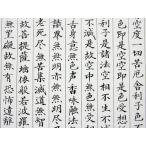 空度一切苦厄舎利子色
色即是空空即是色受想
利子是諸法空相不生不
不減是故空中無色無受
舌身意無色聲香味觸法
識界無無明亦無無明盡
老死盡無苦集滅道無智
故菩提薩埵依般若波羅
無罣礙故無有恐怖遠離